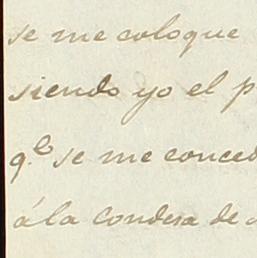 se me coloque
siendo yo el p
q.e se me conced
á la condesa de